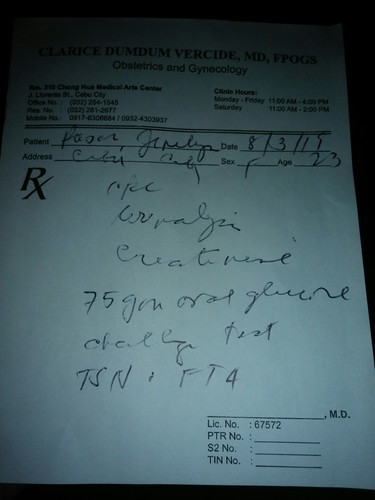 CLARICE DUMDUM VERCIDE, MD, FPOGS
Obstetrics and Gynecology
Rm. 310 Chong Hua Medical Arts Center
J. Llorente St., Cebu City
Office No. : (032) 254-1545
Res. No. : (032) 281-2677
Mobile No.: 0917-6306684 / 0932-4303937
Clinic Hours:
Monday - Friday 11:00 AM - 4:00 PM
Saturday 11:00 AM - 2:00 PM
Patient Date 8/3/19
Address Cebu City Sex F Age 23
Rx
Creatinine
75 gm oral glucose
challenge test
TSH, FT4
, M.D.
Lic. No. : 67572
PTR No. :
S2 No. :
TIN No. :